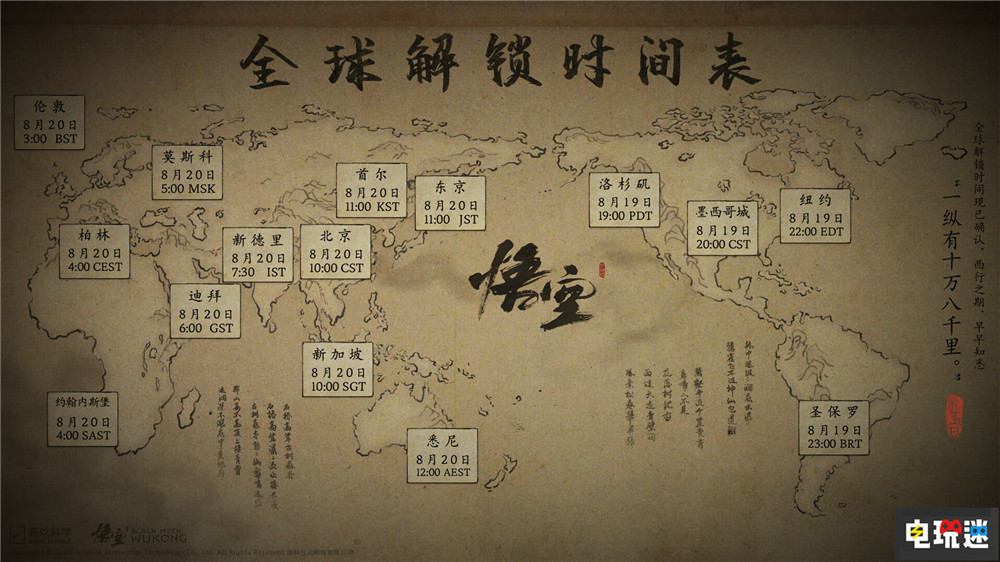 全球解锁时间表
伦敦
8月20日
3:00 BST
莫斯科
8月20日
5:00 MSK
首尔
8月20日
11:00 KST
东京
8月20日
11:00 JST
洛杉矶
8月19日
19:00 PDT
墨西哥城
8月19日
20:00 CST
纽约
8月19日
22:00 EDT
柏林
8月20日
4:00 CEST
新德里
8月20日
7:30 IST
北京
8月20日
10:00 CST
迪拜
8月20日
6:00 GST
新加坡
8月20日
10:00 SGT
约翰内斯堡
8月20日
4:00 SAST
悉尼
8月20日
12:00 AEST
圣保罗
8月19日
23:00 BRT
悟空
全球解锁时间现已确认,西行之期,早早知悉
“一纵有十万八千里。”
游戏科学
GAME SCIENCE
悟空
BLACK MYTH
WUKONG
电玩迷